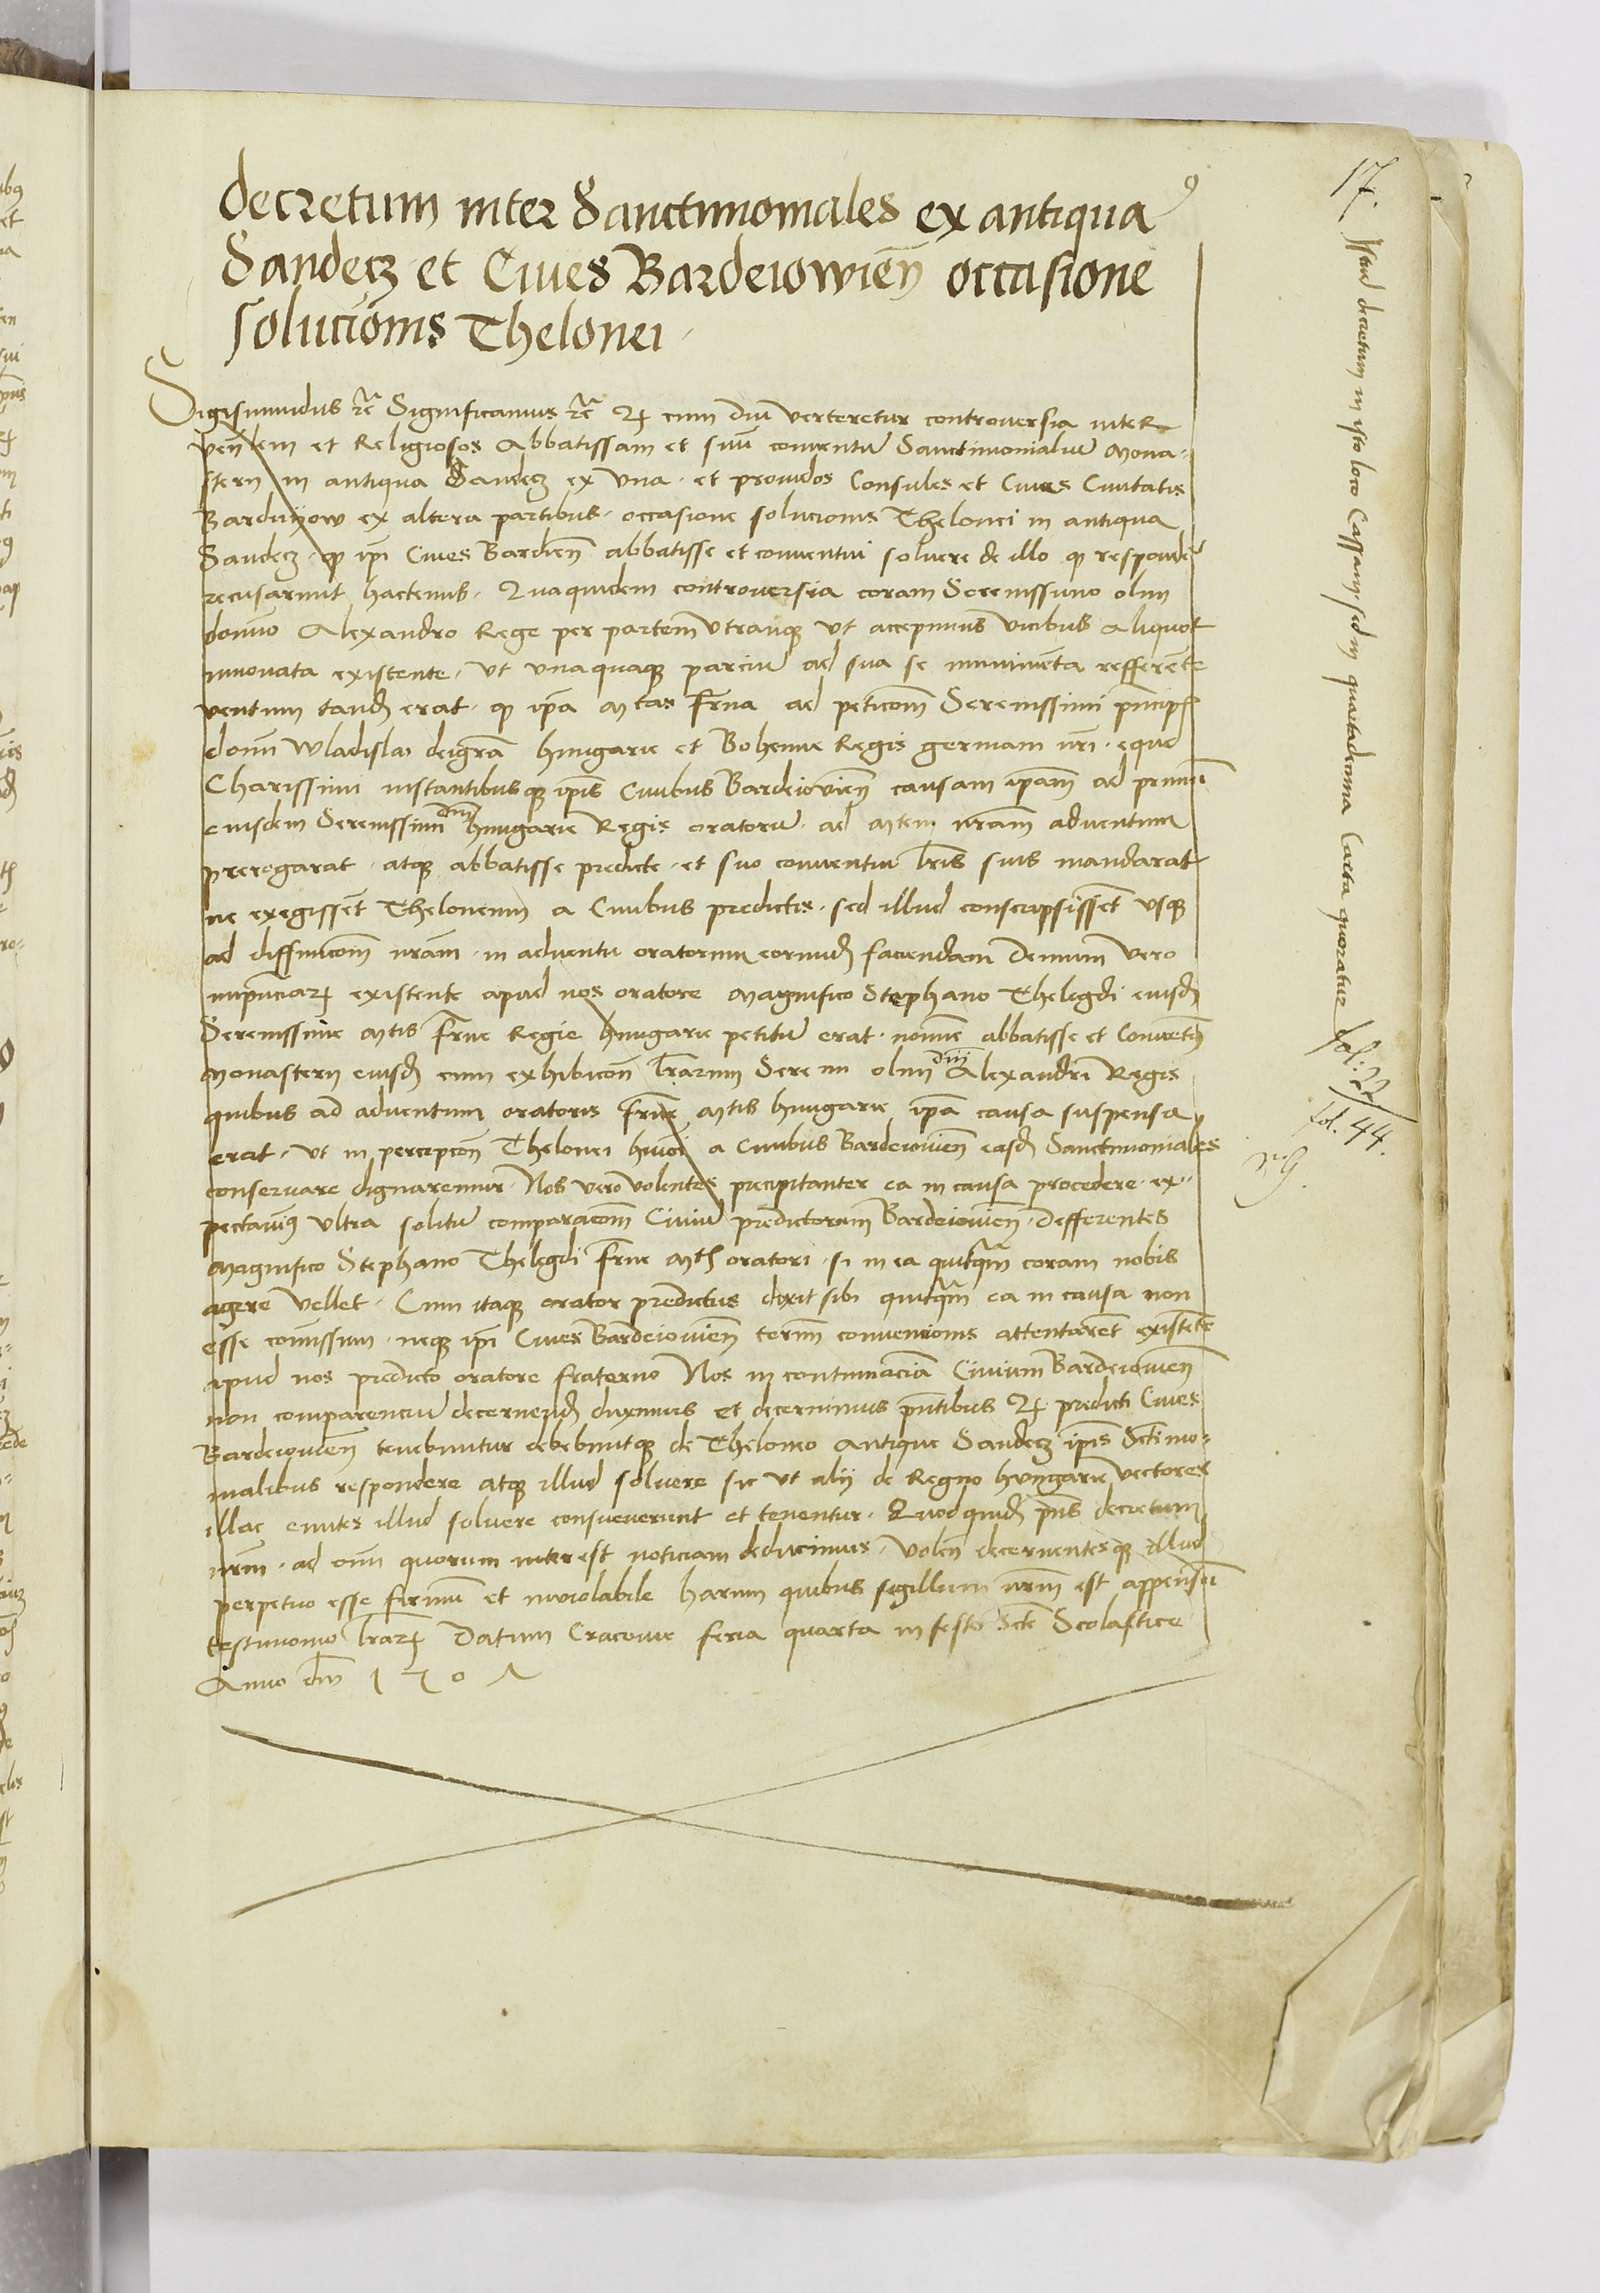 decretum inter Sanctimoniales ex antiqua
Sandecz et Cives Bardeiowien̄ occasione
solucionis Thelonei
Sigismundus etc̄ Significamus etc̄ Qz cum diu verteretur controversia inter
ven̄lem et Religiosos Abbatissam et suū conventū Sanctimonialiū Mona-
sterii in antiqua Sandecz ex una. et providos Consules et Cives Civitatis
Bardiyow ex altera partibus. occasione solucionis Thelonei in antiqua
Sandecz. qz ip̄i Cives Bardien̄ abbatisse et conventui solvere de illo qz respondē
recusarunt hactenus. Quaquidem controversia coram Serenissimo olim
domino Alexandro Rege per partem utranqz ut accepimus vicibus aliquot
innovata existente. ut unaquaqz parciū ad sua se munimēta refferente
ventum tandē erat. qz ip̄a Mtas frn̄a ad peticōem Serenissimi principis
domī Wladislai dei grā hungarie et Bohemie Regis germani nrī. eque
Charissimi instantibusqz ip̄is Civibus Bardeiovien̄ causam ipam̄ ad primū
eiusdem Serenissimi dni hungarie Regis oratorū ad Mtem nram̄ adventum
prerogarat. atqz abbatisse predicte. et suo conventui lrīs suis mandarat
ne exegissēt Theloneum a Civibus predictis. sed illud conscripsissēt usqz
ad diffinicōem nram̄. in adventu oratorum eorundē faciendam Demum vero
existente apud nos oratore Magnifico Stephano Thelegdi eiusdē
Serenissime Mtis frn̄e Regie hungarie petitū erat. nomine abbatisse et Conventus
Monasterii eiusdē cum exhibicōe lrārum Serenī olim dni Alexandri Regis
quibus ad adventum oratoris frn̄e Mtis hungarie ip̄a causa suspensa
erat. ut in percepcōe Thelonei huiōi a Civibus Bardeiovien̄ easdē Sanctimoniales
conservare dignaremur. Nos vero volentes precipitanter ea in causa procedere. ex-
pectavimus ultra solitū comparacōem Civiū predictorum Bardeiovien̄. defferentes
Magnifico Stephano Thelegdi frn̄e Mtis oratori. si in ea quitqz̄m coram nobis
agere vellet. Cum itaqz orator predictus dixit sibi quitqz̄m ea in causa non
esse comissum. neqz ip̄i Cives Bardeiovien̄ conventionis attentarēt existēte
apud nos predicto oratore fraterno Nos in contumaciā Civium Bardeiovien̄
non comparenciū decernendū duximus et decernimus pn̄tibus Qz predicti Cives
Bardeiovien̄ tenebuntur debebuntqz de Theloneo Antique Sandecz ip̄is Sctimo-
nialibus respondere atqz illud solvere sic ut alii de Regno hungarie vectores
illac eūtes illud solvere consueverunt et tenentur. Quod quidē pn̄s decretum
nrm̄. ad om̄ quorum interest noticiam deducimus. volen̄ decernentesqz illud
perpetuo esse firmū et inviolabile harum quibus sigillum nrm̄ est appensū
testimonio lrārz Datum Cracovie feria quarta in festo Scte Scolastice
Anno dni 1507
17.
Istud decretum in isto loco Cassatum sed in quartadecima Carta queratur
fol: 22
fol. 44.